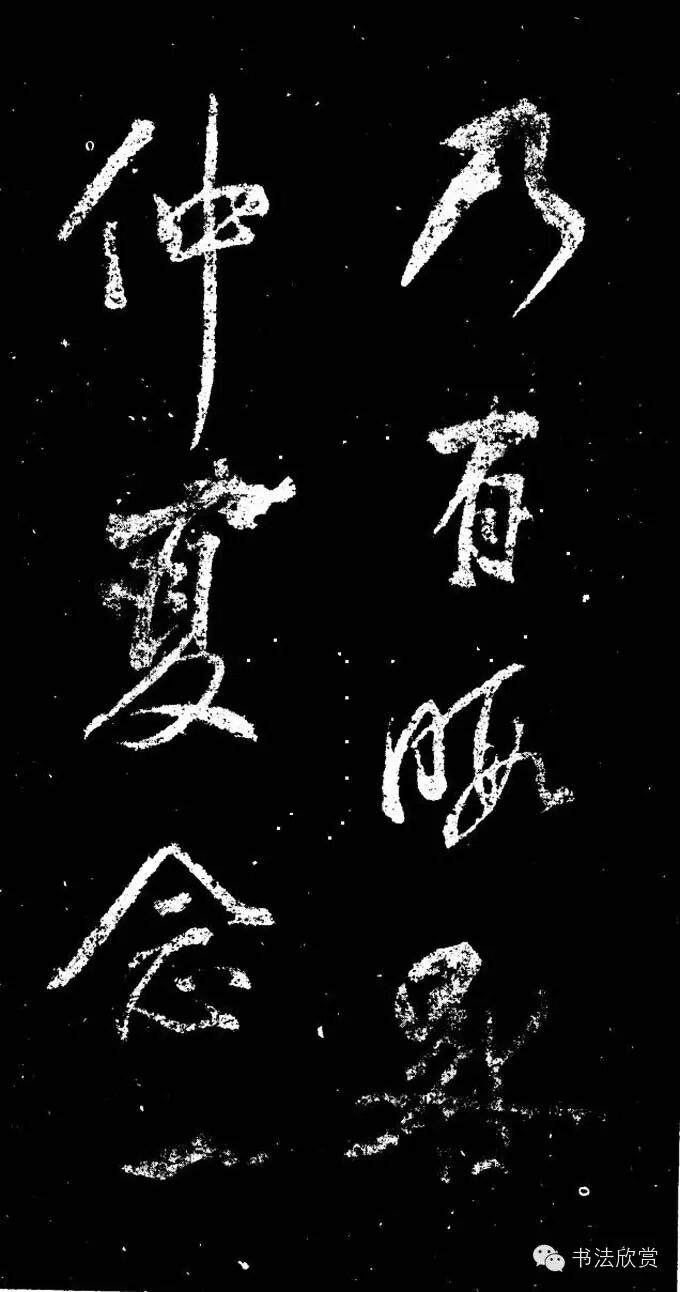 乃有
仲夏念一
书法欣赏